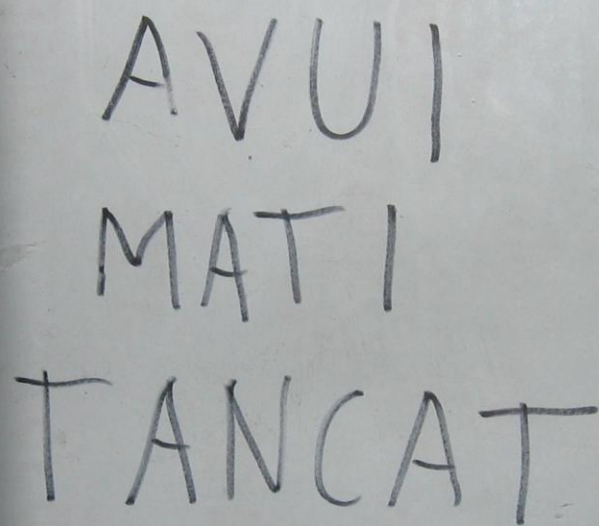 AVUI
MATI
TANCAT